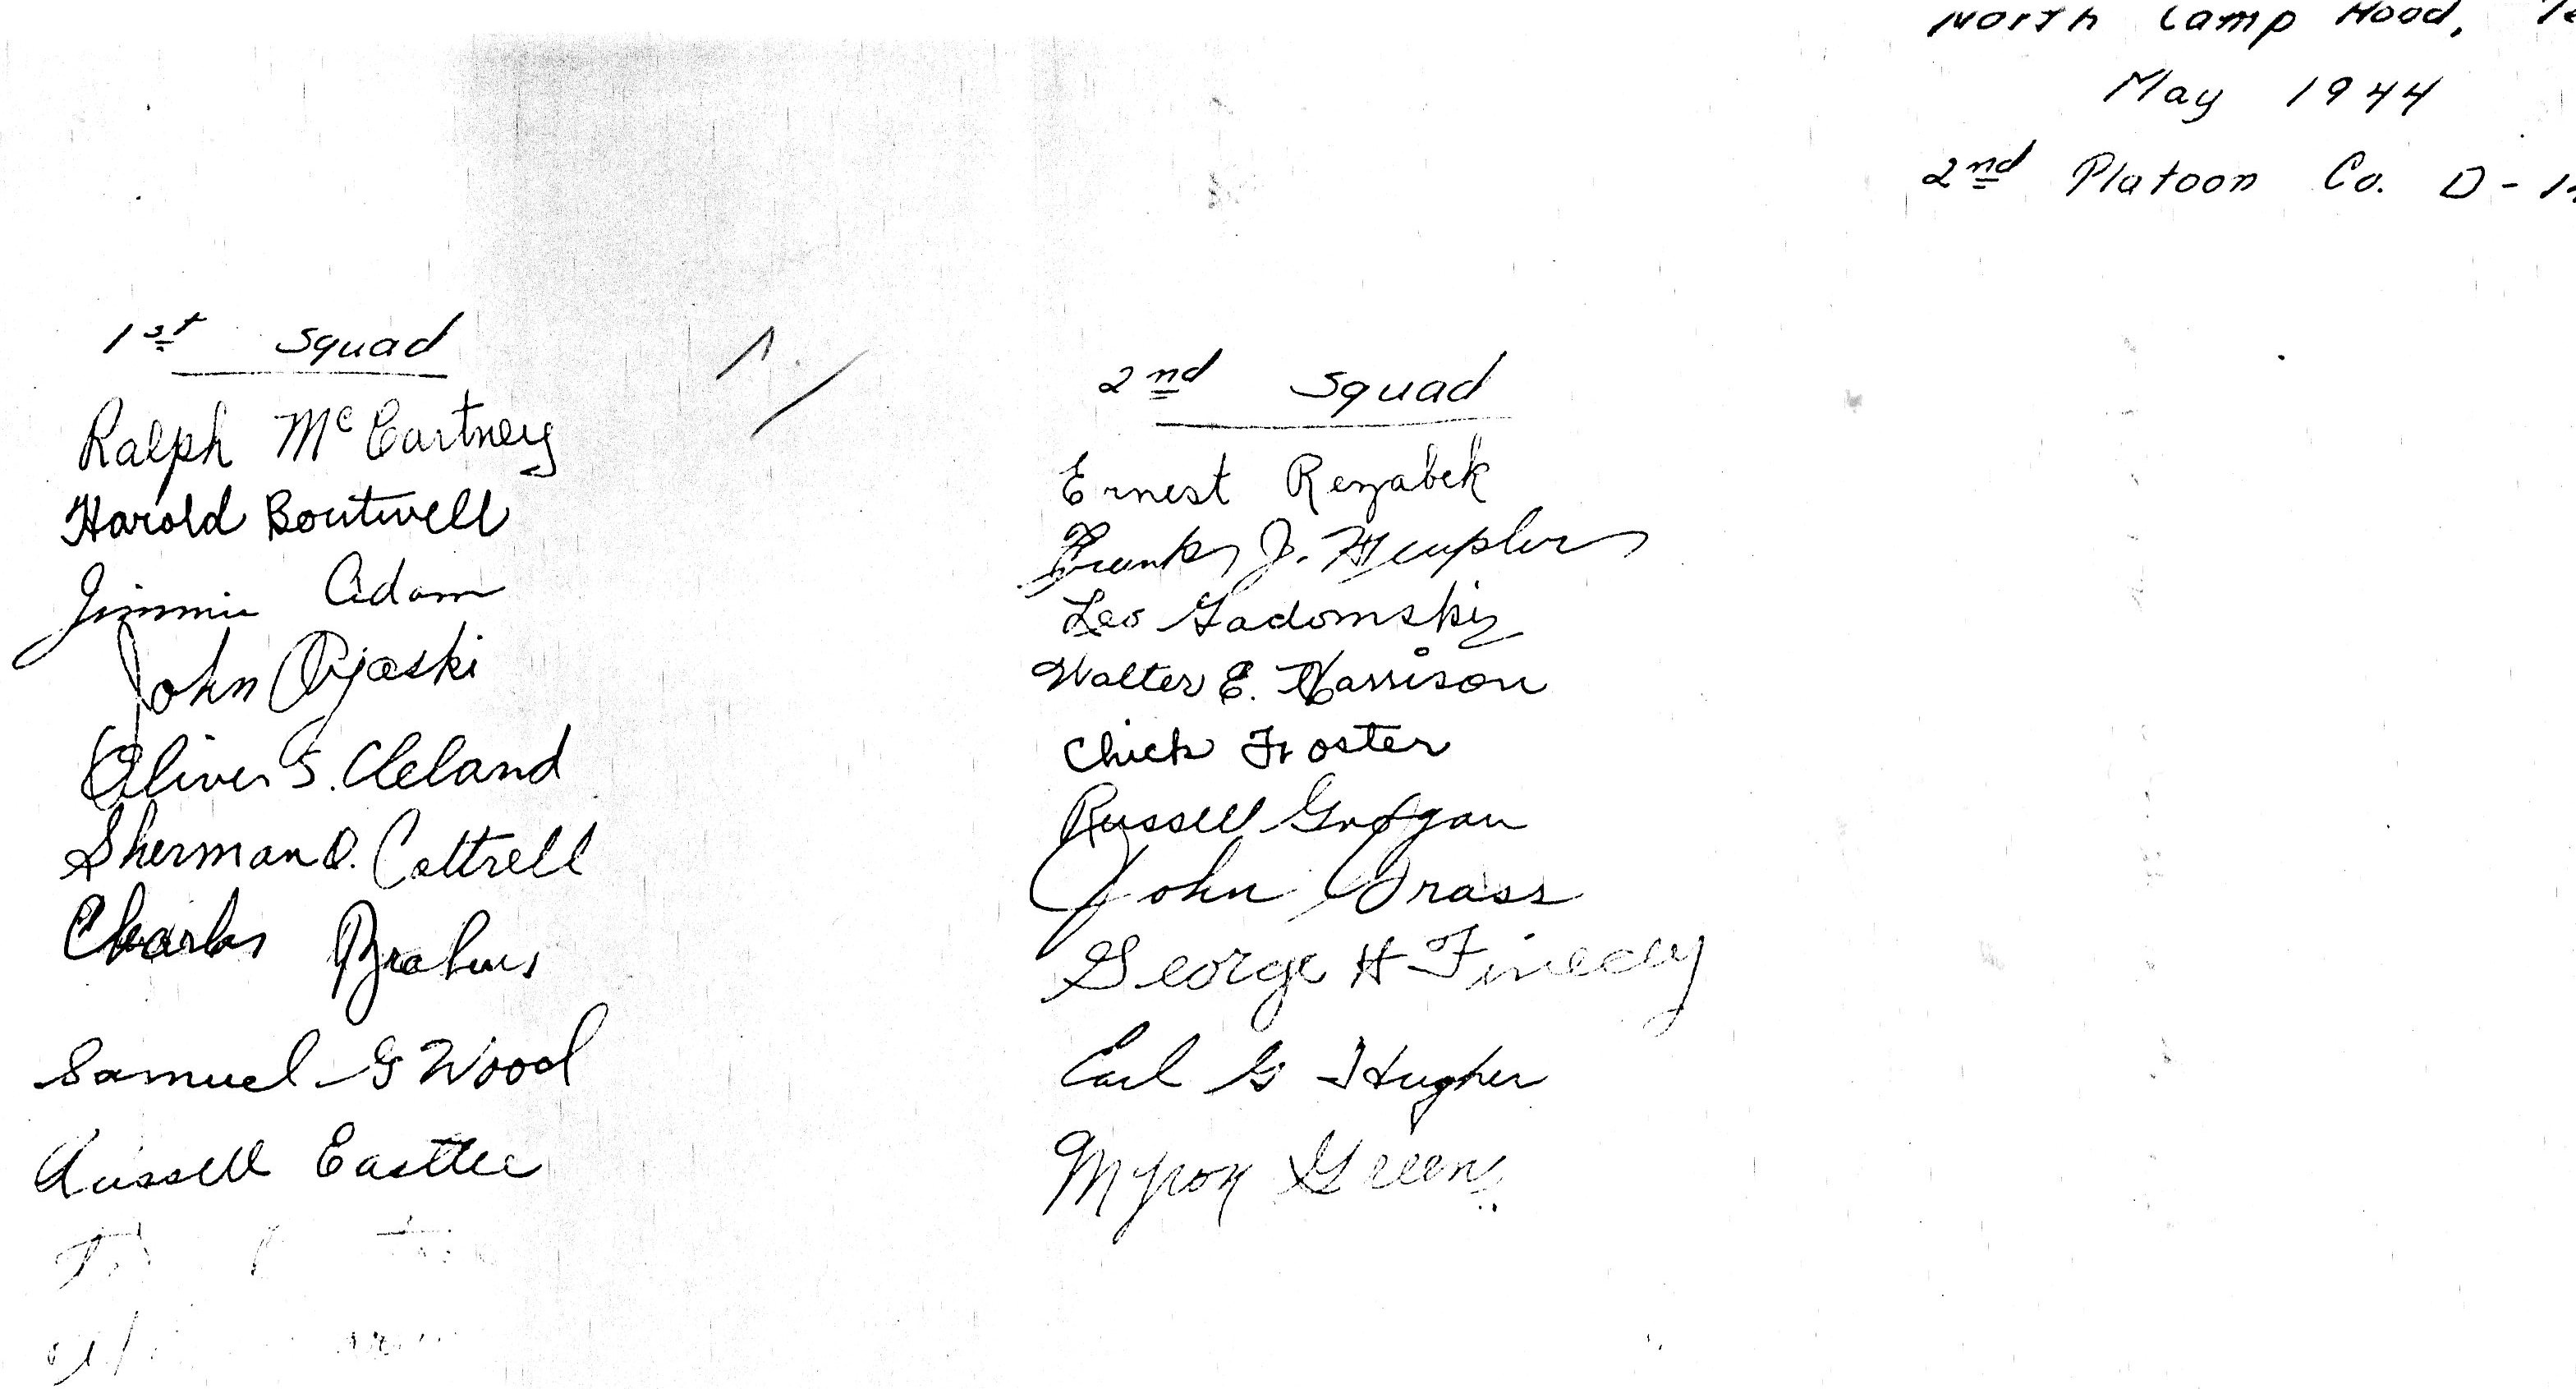 North Camp Hood,
May 1944
2nd Platoon Co. D -
1st Squad
Ralph McCartney
Harold Boutwell
Jimmie Adam
John
Oliver S. Cleland
Sherman O. Cottrell
Charles Brahms
Samuel G Wood
Russell
2nd Squad
Ernest Rezabek
Frank J.
Leo Gadomski
Walter E. Harrison
Chick Foster
Russell Grogan
John Grass
George H
Earl G Hughes
Myron Green